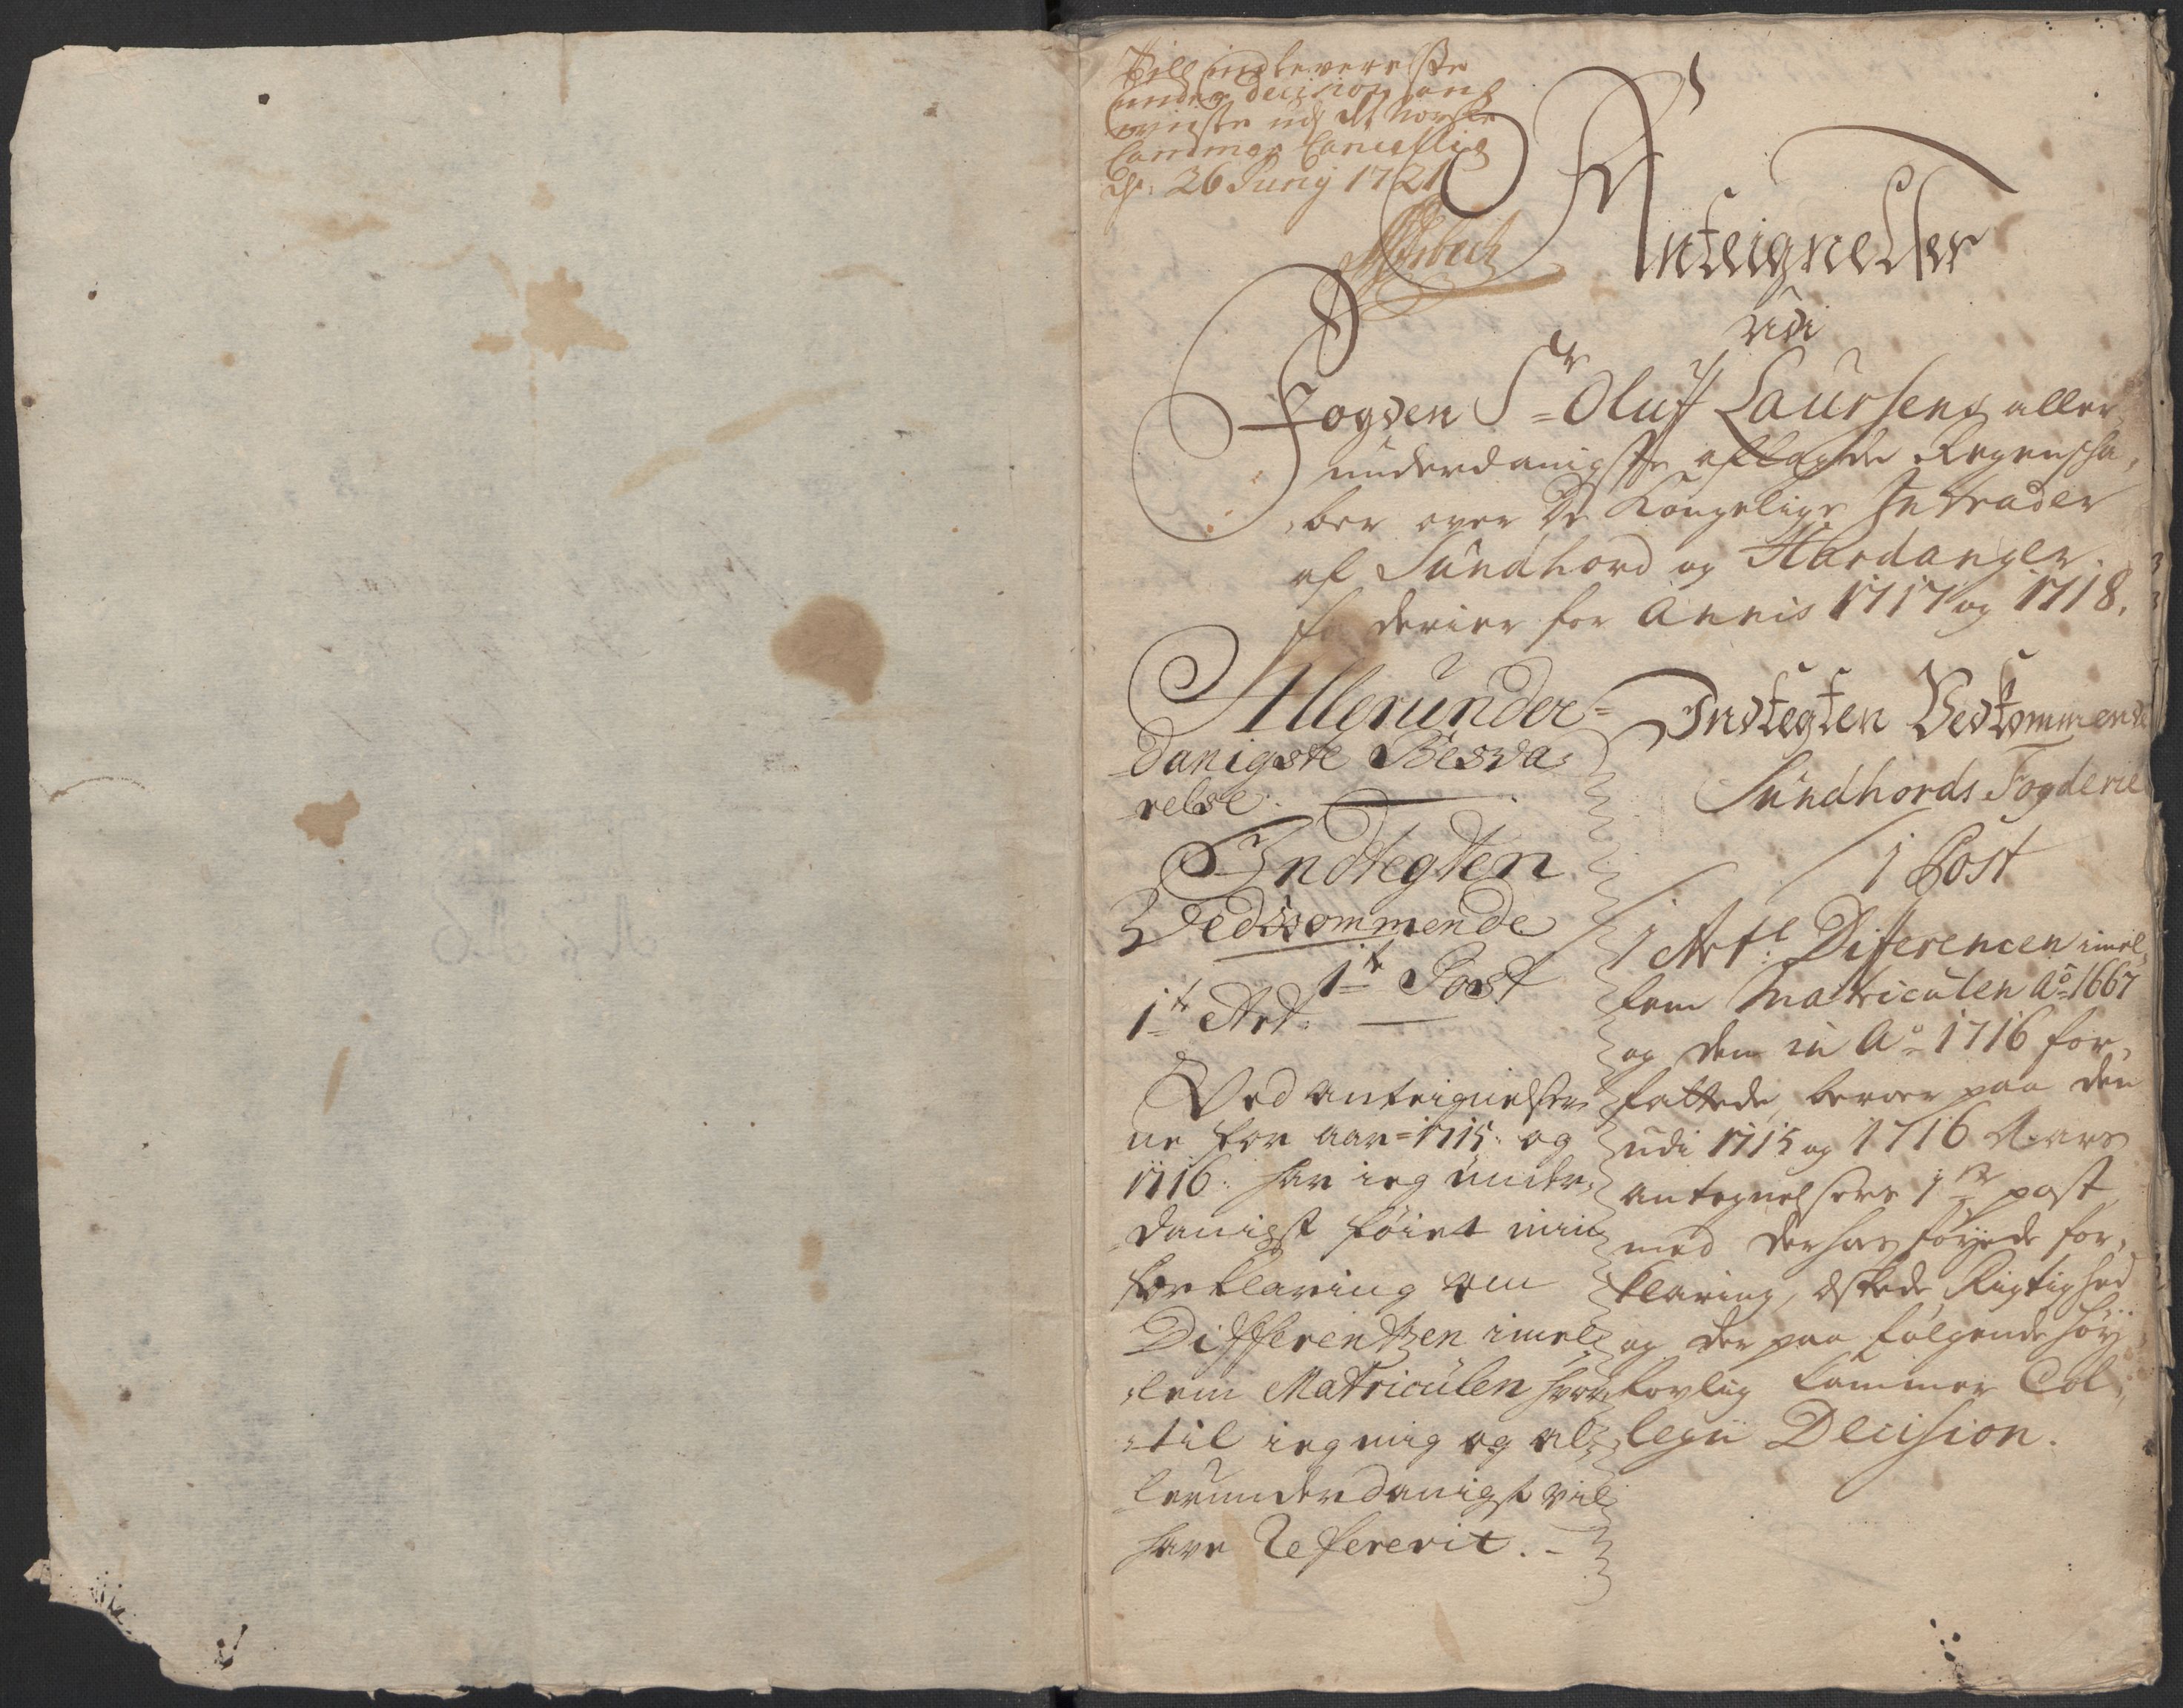 under decision
ud det Norske
Cammer Cancellie
d: 26 Junÿ 1721
Anteignelser
udi
Fogden Sr Oluf Laursens aller
underdanigste aflagde Regenscha,
ber over De Kongelige Intrader
af Sundhord og Hardanger
fogderier for Annis 1717 og 1718,
Allerunder=
danigste Besva
relse
Indtegten
Vedkommende
1te Post
1te Art:
Ved anteignelser
ne for aar 1715: og
1716: har ieg under,
danigst føiet min
forklaring om
Differentzen imel
lem Matriculen hvor
til ieg mig og al
lerunderdanigst vil
have Refererit. -
Indtegten Vedkommende
Sundhords Fogderie
1 Post
1 Artl: Differencen imel,
lem Matriculen Ao 1667
og den in Ao 1716 for,
fattede, beroer paa den
udi 1715 og 1716 Aars
antegnelsers 1te post
med derhos føyede for,
klaring, æskede Rigtighed
og der paa følgende høy
lovlig Cammer Col,
legii Decision.